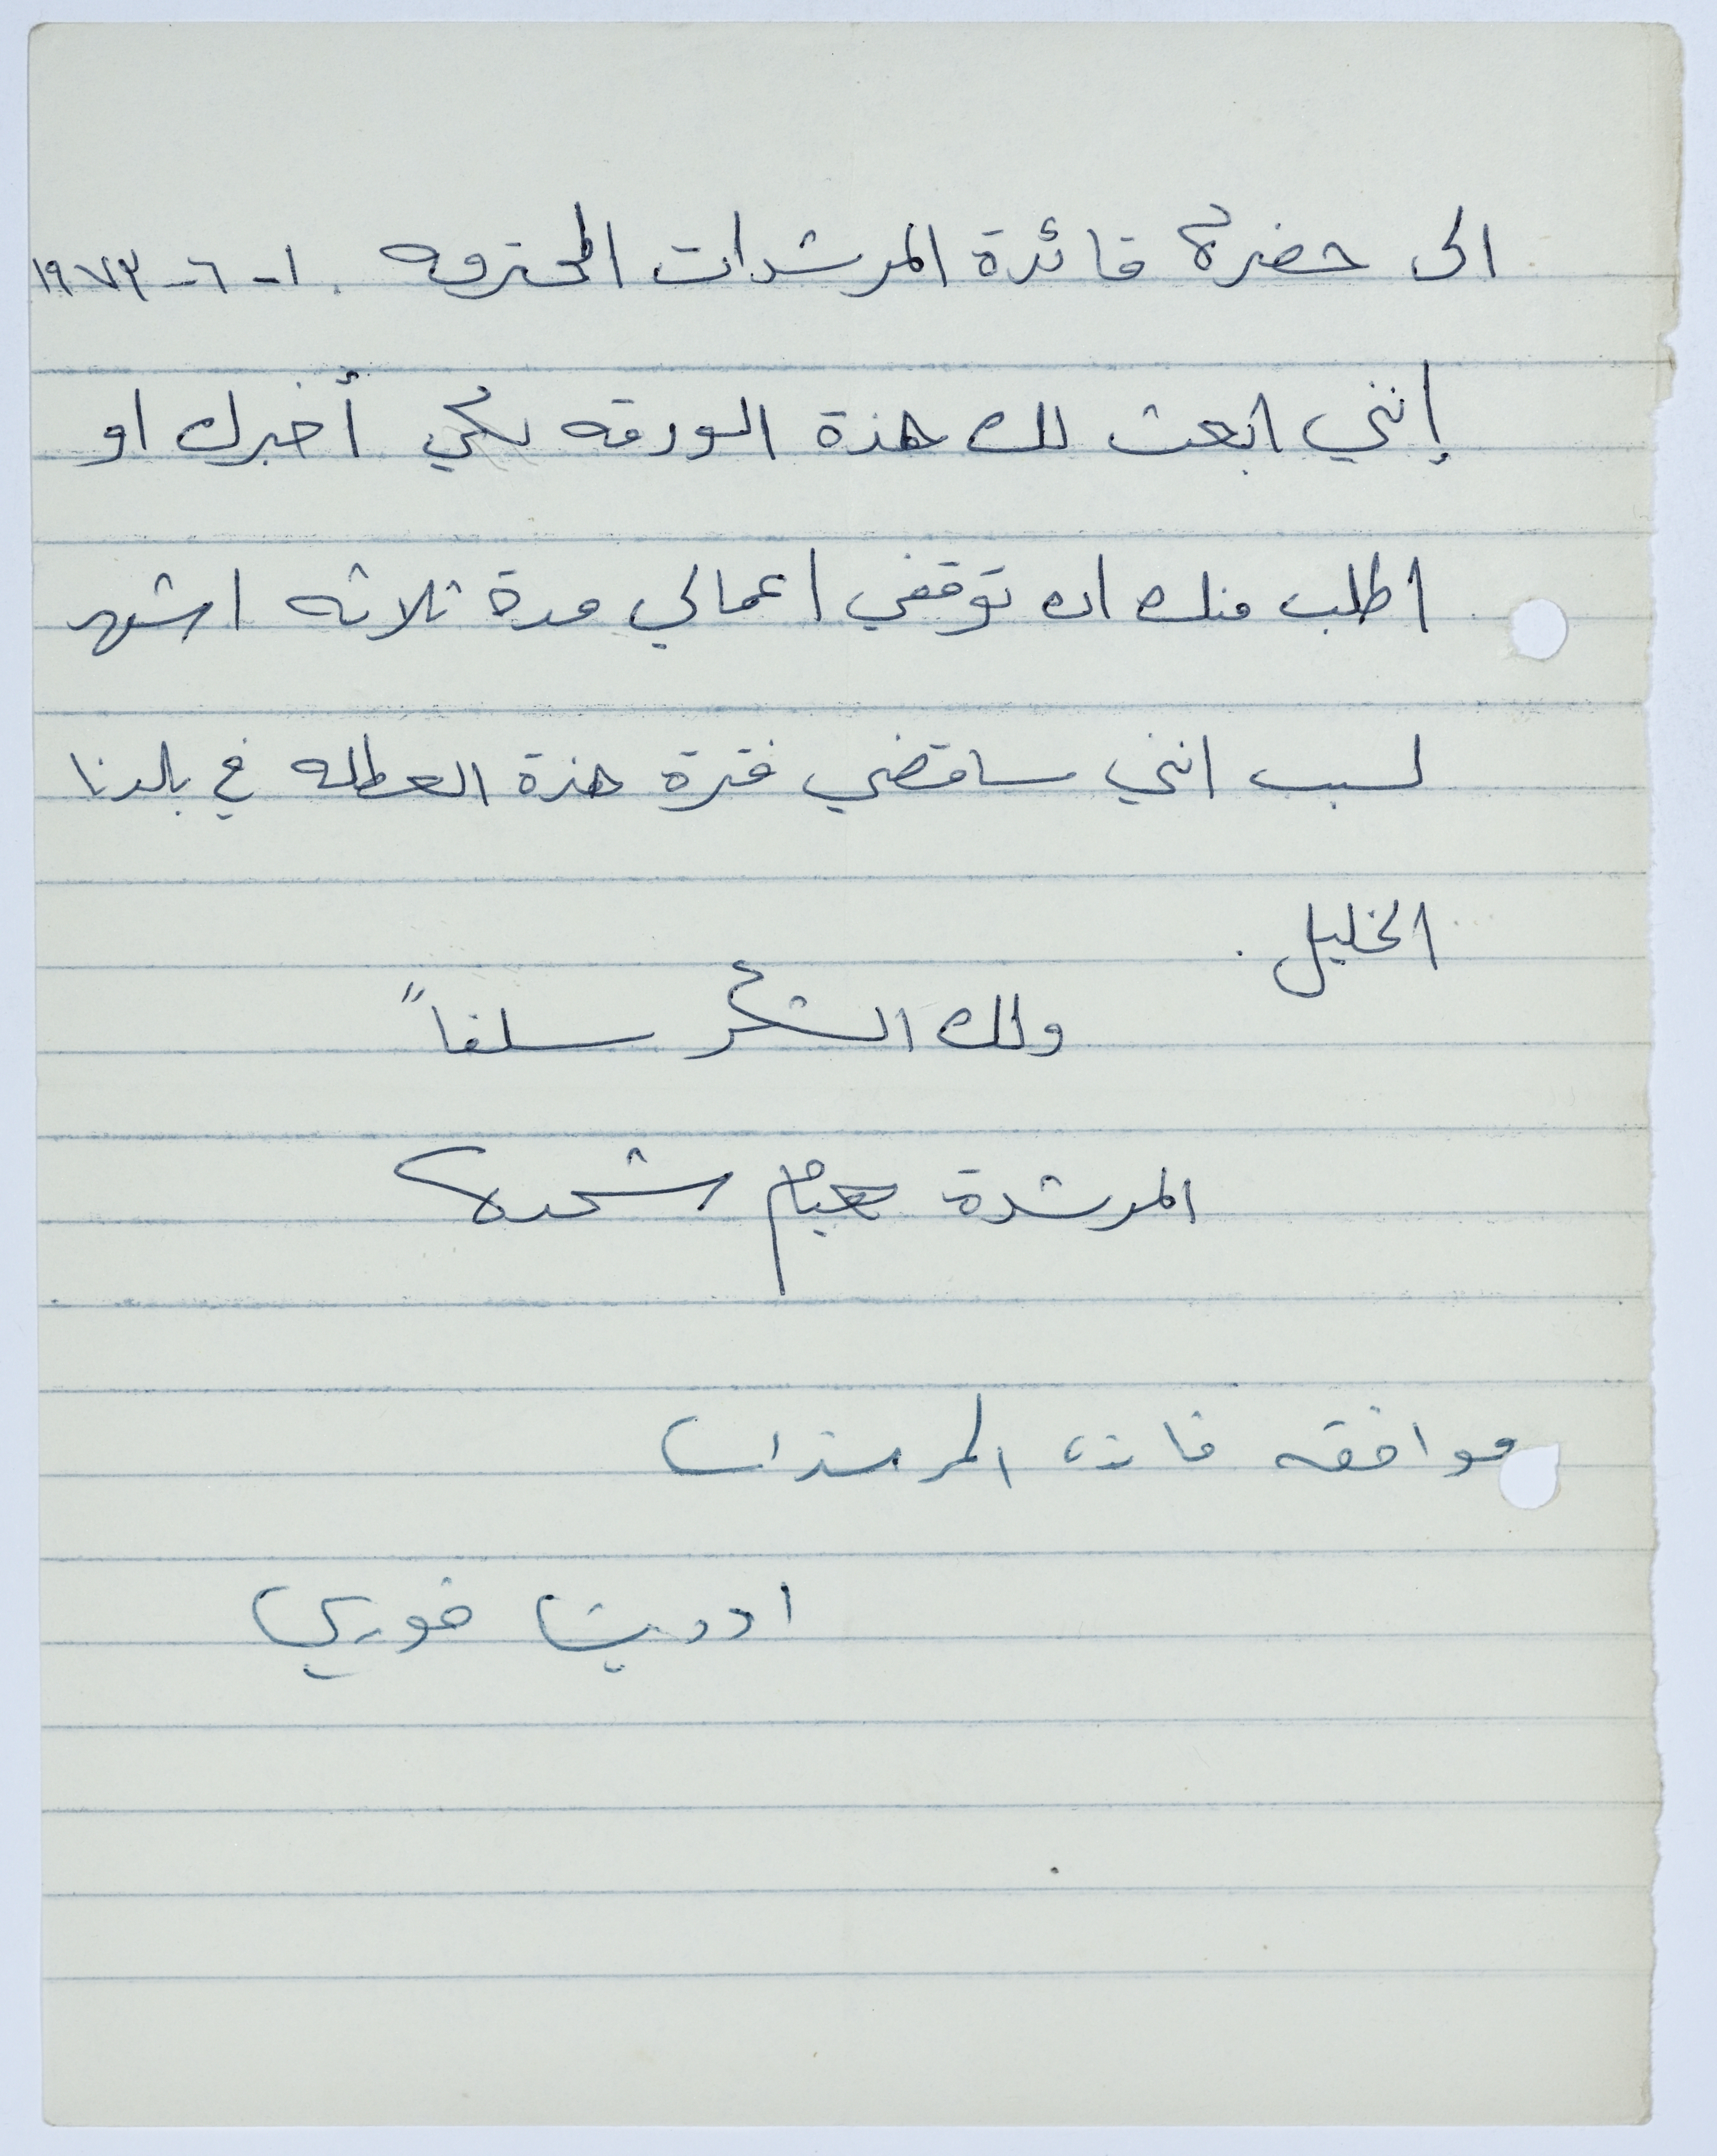 الى حضرة قائدة المرشدات المحترمه . ١-٦-١٩٧٣
إنني ابعث لك هذة الورقه لكي أخبرك او
اطلب منك ان توقفي اعمالي مدة ثلاثه اشهر
لسبب انني ساقضي فترة هذة العطله في بلدنا
الخليل .
ولك الشكر سلفاً
المرشدة هيام شحدة
موافقه قائدة المرشدات
خوري